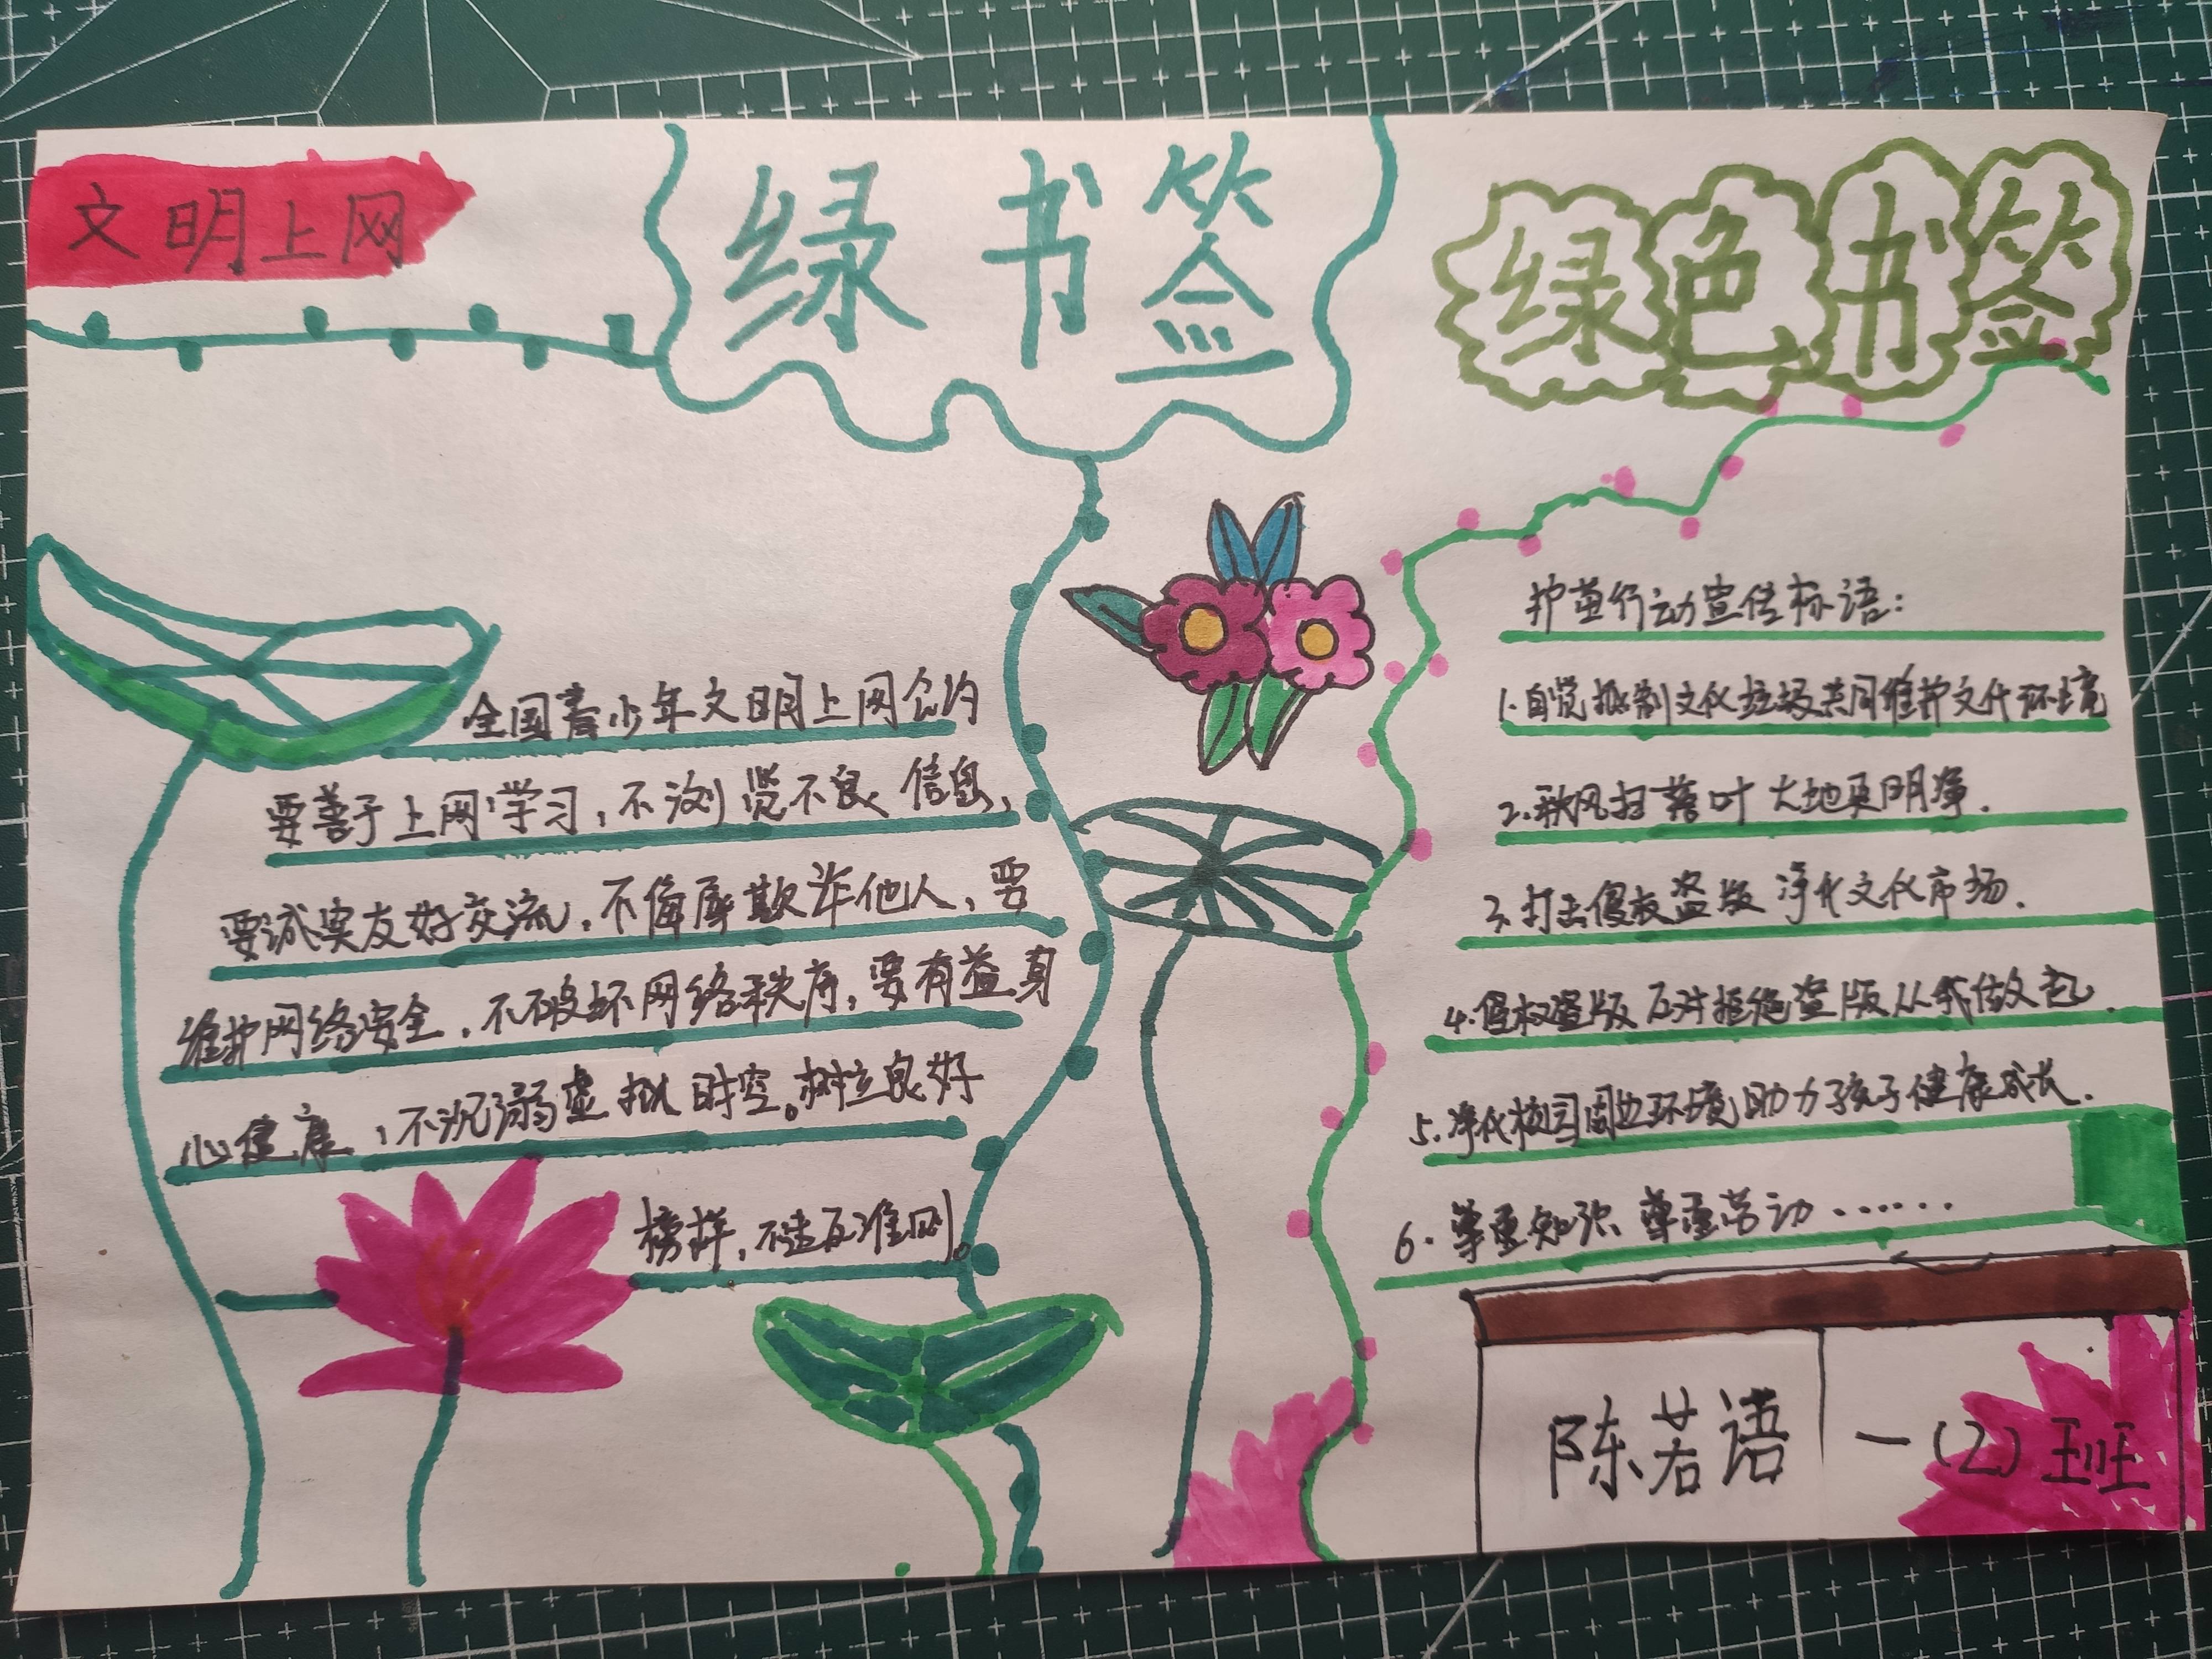 文明上网
绿书签
绿色书签
全国青少年文明上网公约
要善于上网学习，不浏览不良信息，
要诚实友好交流，不侮辱欺诈他人，要
维护网络安全，不破坏网络秩序，要有益身
心健康，不沉溺虚拟时空。树立良好
榜样，不违反准则。
护苗行动宣传标语：
1.自觉抵制文化垃圾共同维护文化环境
2.秋风扫落叶 大地更明净.
3.打击侵权盗版 净化文化市场.
4.侵权盗版 反对拒绝盗版从我做起.
5.净化校园周边环境助力孩子健康成长.
6.尊重知识 尊重劳动······
陈若语
一(2)班